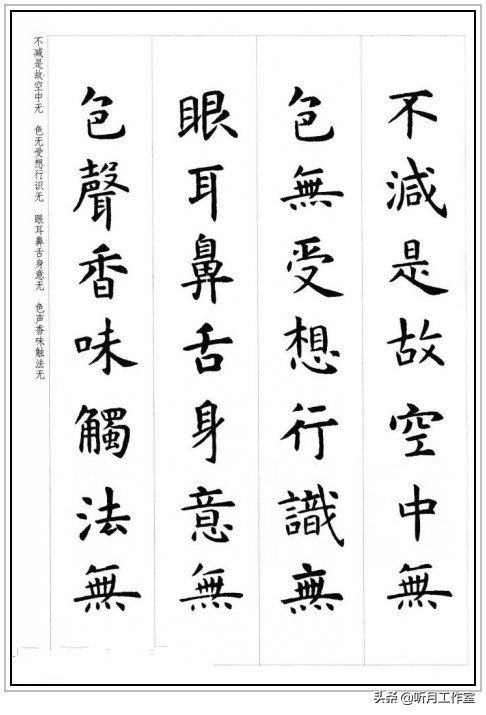 不減是故空中無
色無受想行識無
眼耳鼻舌身意無
色聲香味觸法無
不减是故空中无 色无受想行识无 眼耳鼻舌身意无 色声香味触法无
头条 @听月工作室